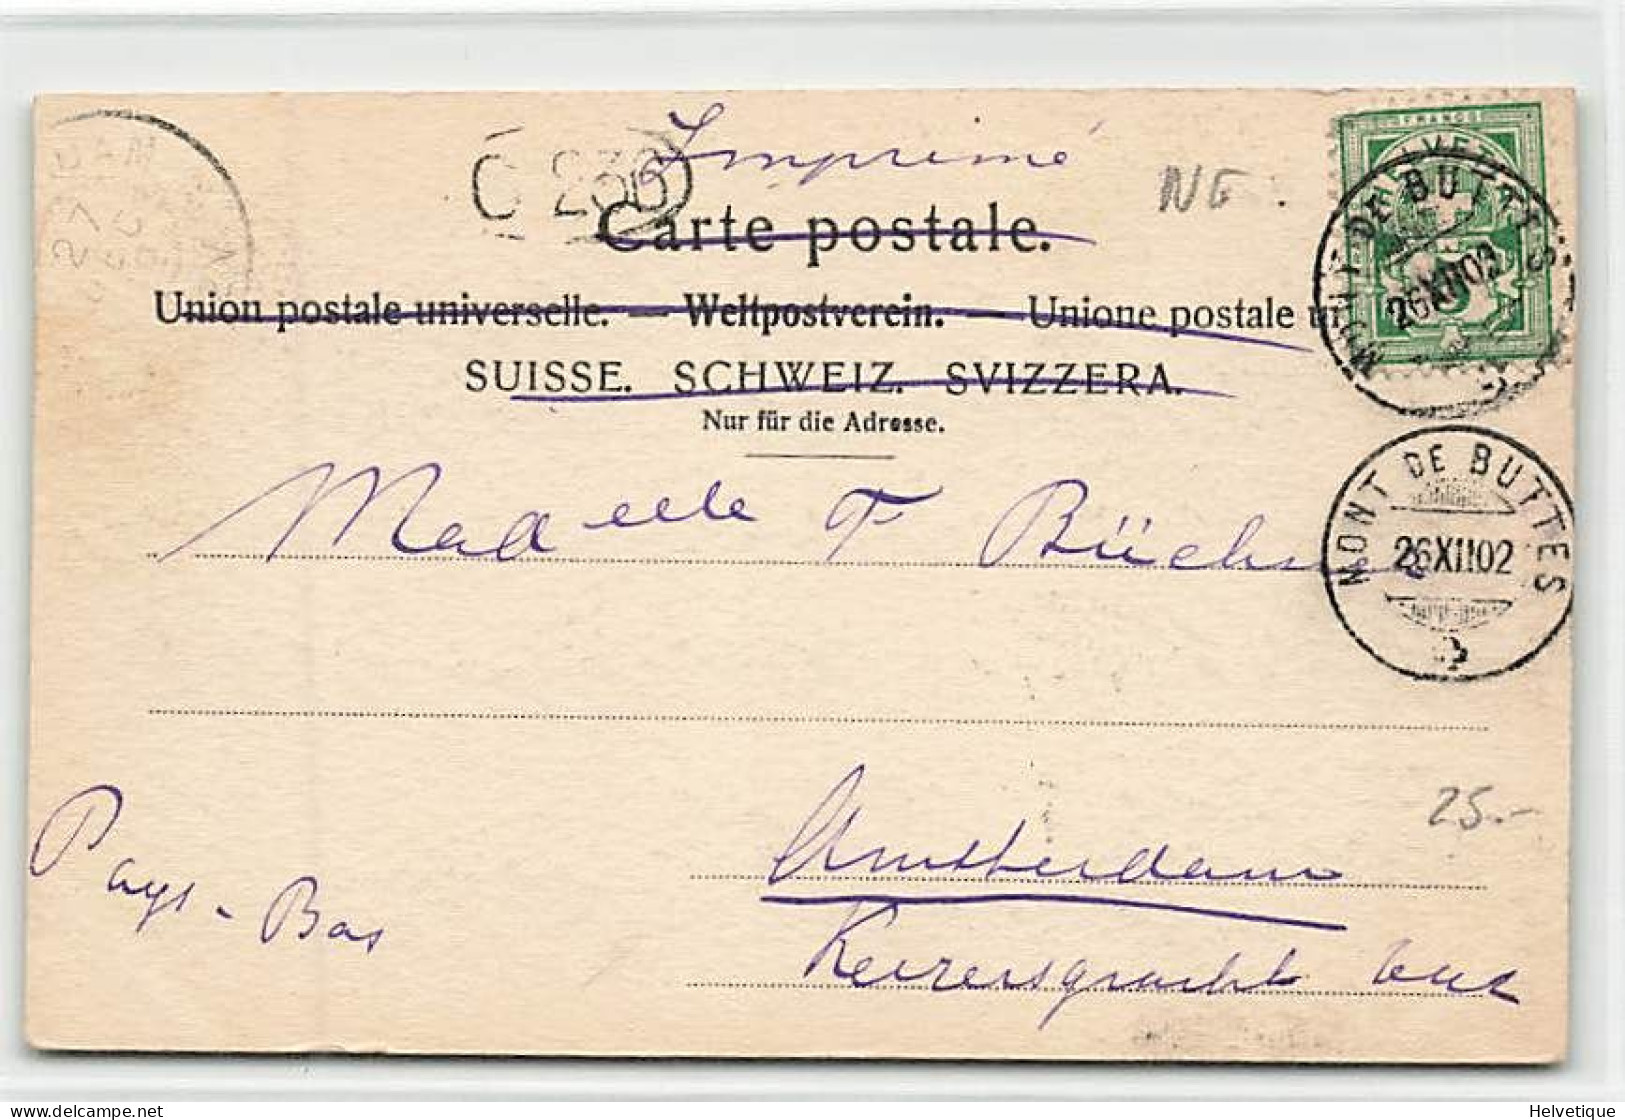 Imprimé
Carte postale.
NE
G 236
FRANCO
HELVETIA
MONT DE BUTTES
26 XII 02
Union postale universelle. — Weltpostverein. — Unione postale
SUISSE. SCHWEIZ. SVIZZERA.
Nur für die Adresse.
Madelle F Büchner
MONT DE BUTTES
26 XII 02
25.-
Amsterdam
Pays-Bas
Keizersgracht
Helvetique
www.delcampe.net